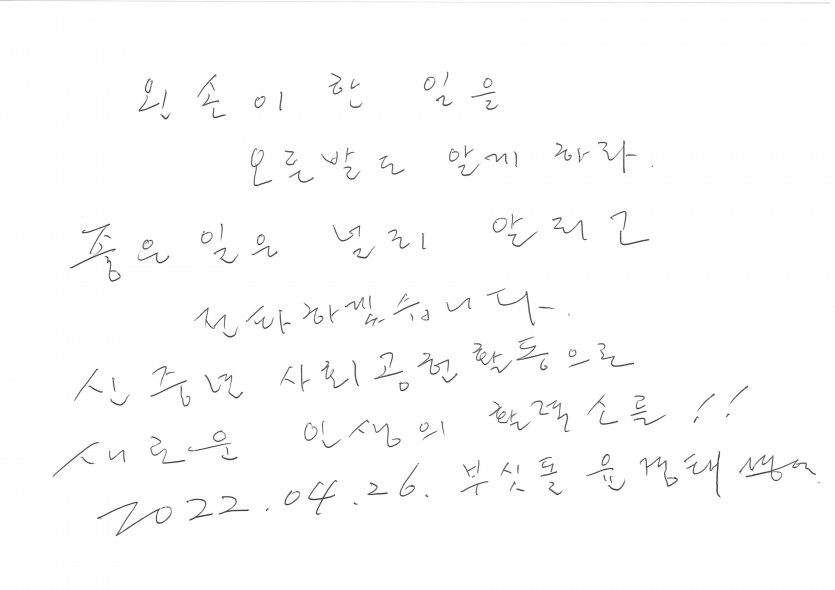 왼손이 한 일을
오른발도 알게 하라.
좋은 일은 널리 알리고
전파하겠습니다.
신중년 사회공헌활동으로
새로운 인생의 활력소를!!
2022.04.26. 부싯돌 윤경태